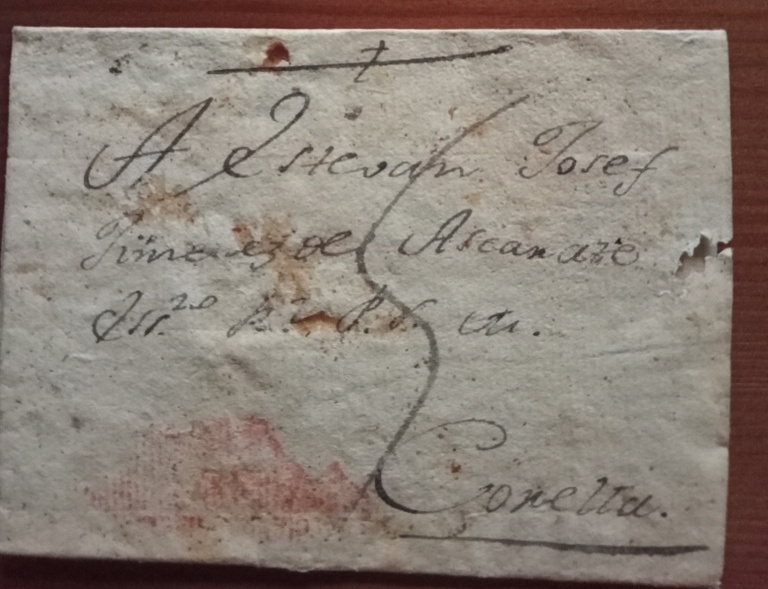 A Estevan Josef
Jimenez de Ascarate
Ess.no R.l en.
Corella.